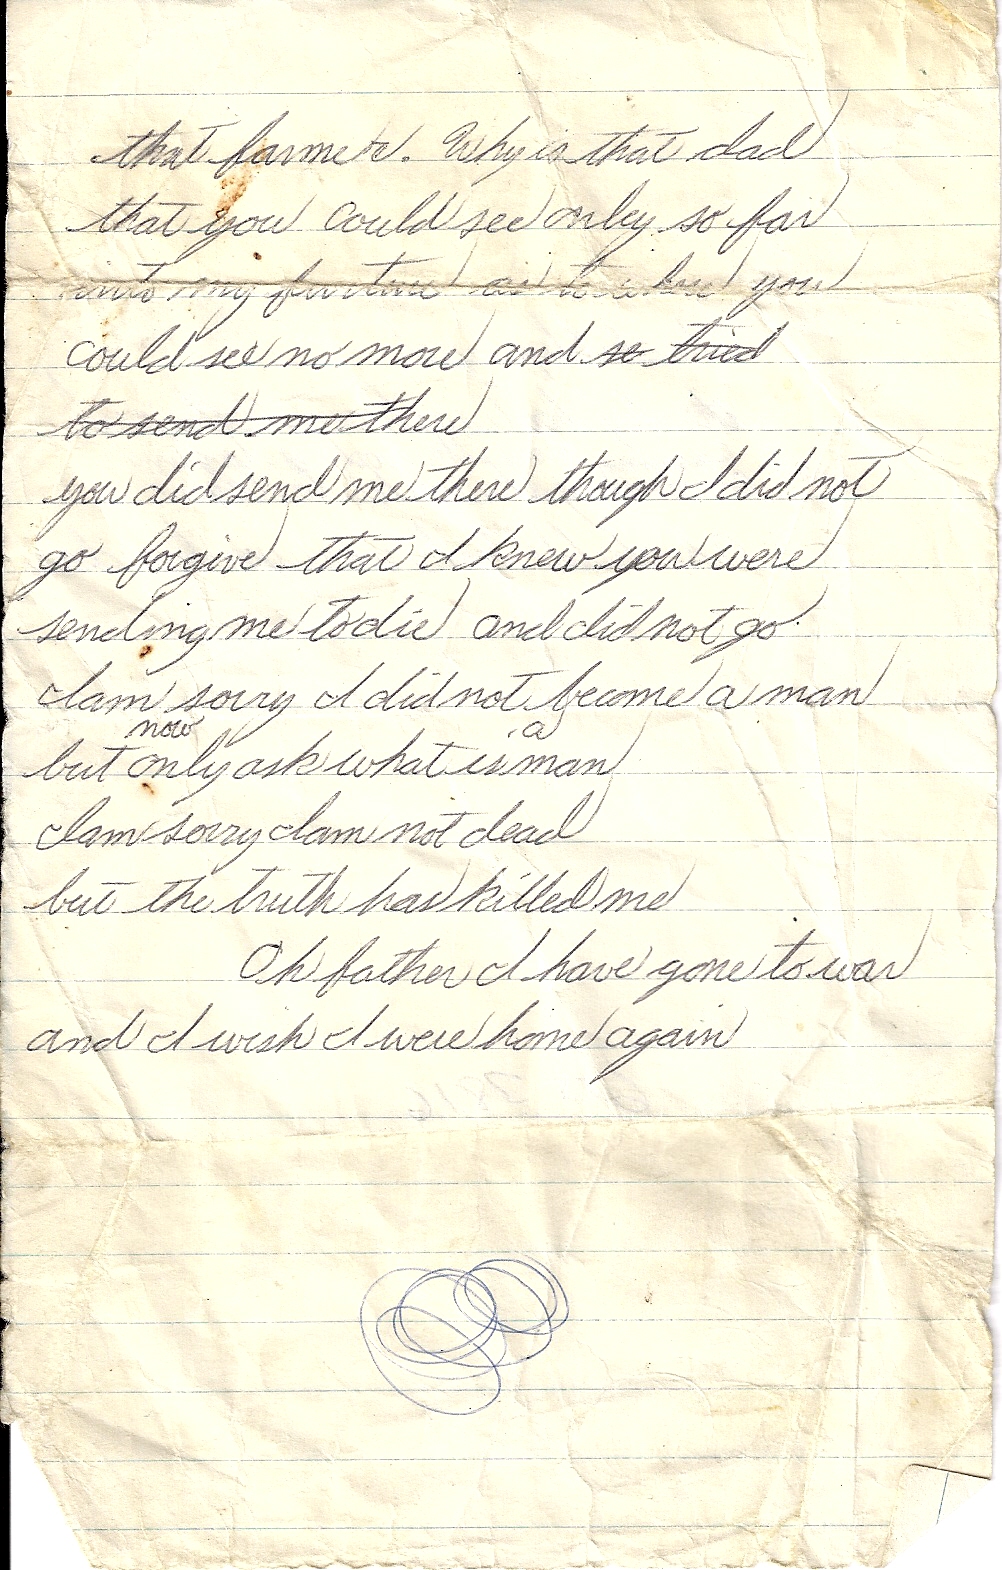 that farmer. Why is that dad
that you could see only so far
into my furture as to where you
could see no more and so tried
to send me there
you did send me there though I did not
go forgive that I knew you were
sending me to die and did not go
I am sorry I did not become a man
now a
but only ask what is man
I am sorry I am not dead
but the truth has killed me
Oh father I have gone to war
and I wish I were home again